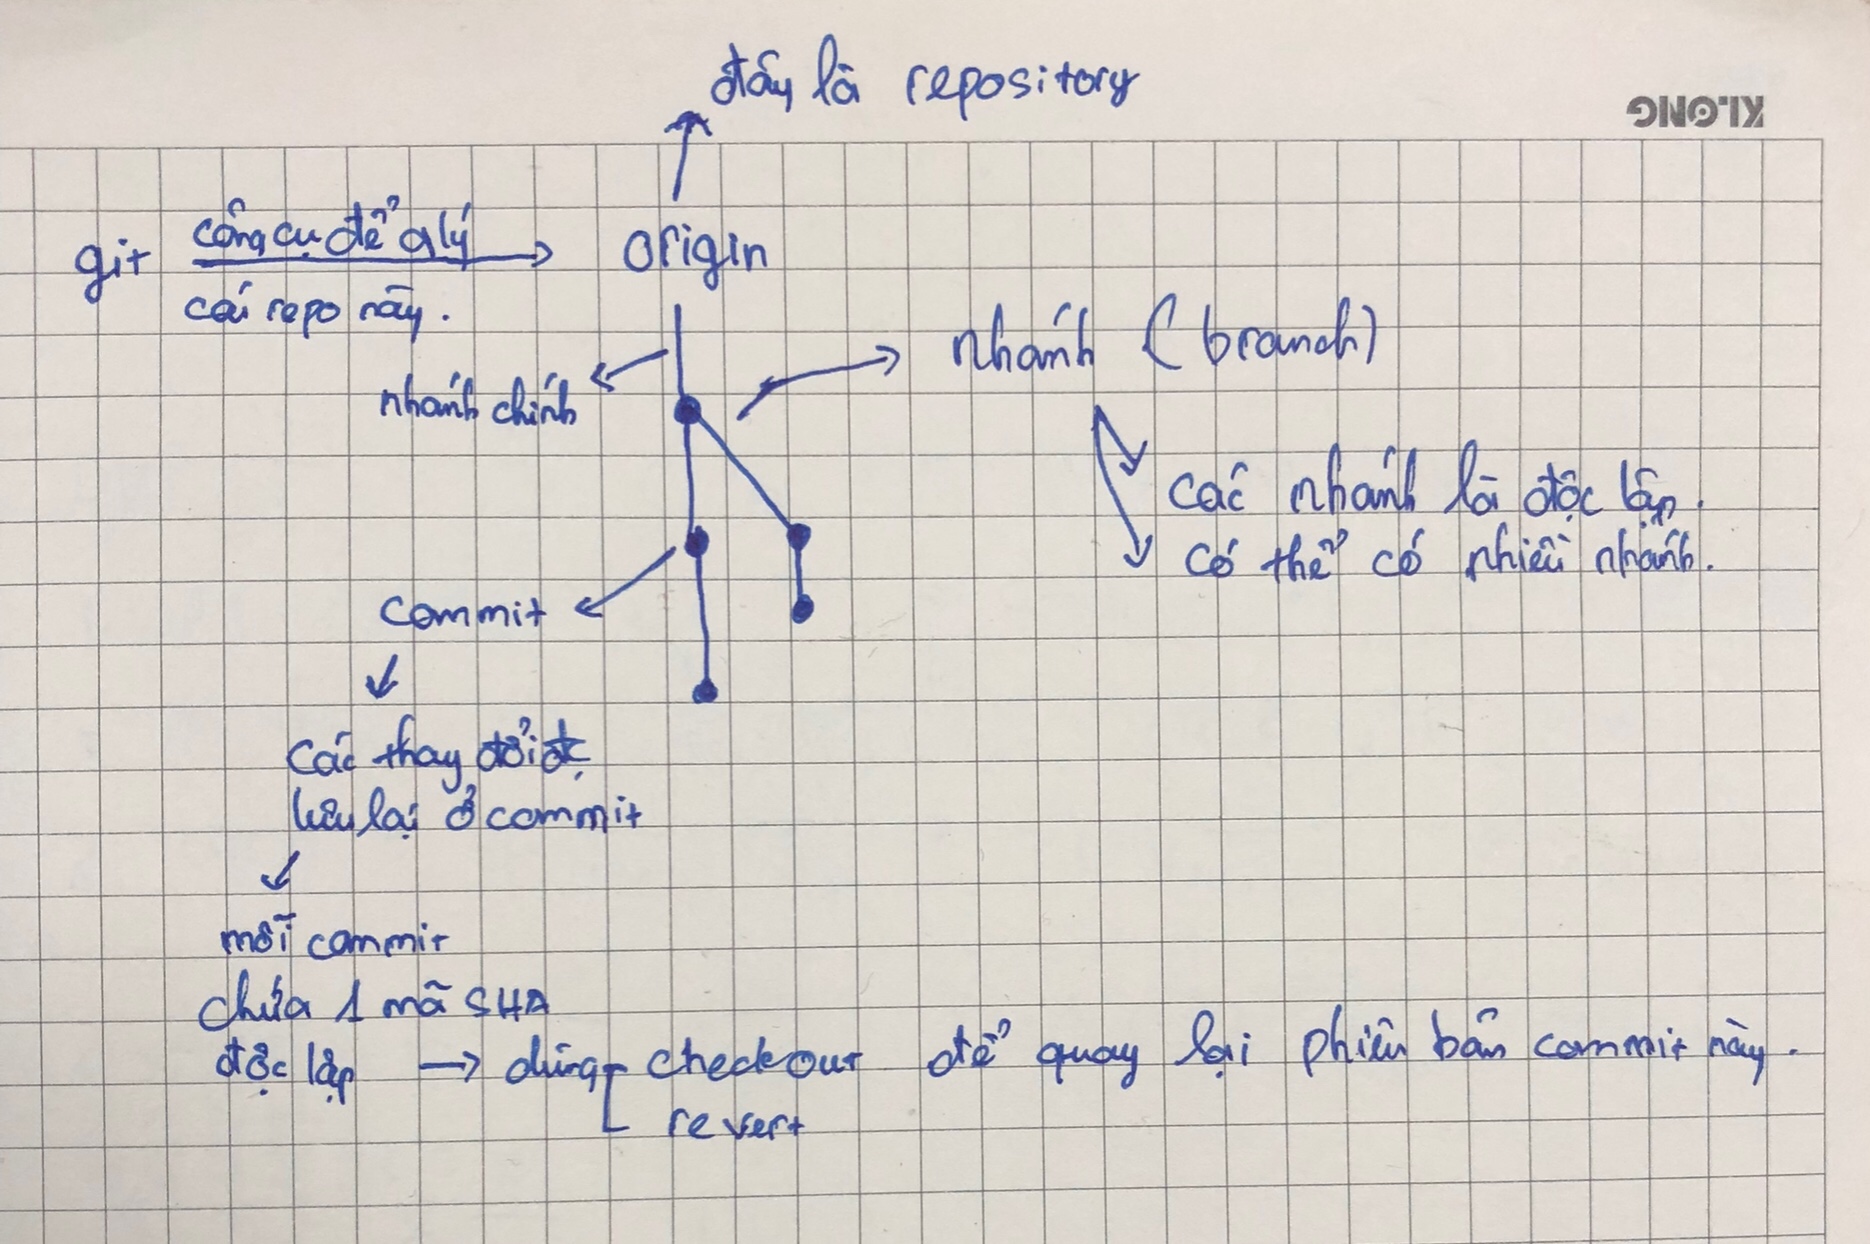 đây là repository
KLONG
git công cụ để qlý origin
cái repo này.
nhánh (branch)
nhánh chính
các nhánh là độc lập.
có thể có nhiều nhánh.
commit
các thay đổi đc
lưu lại ở commit
mỗi commit
chứa 1 mã SHA
độc lập → dùng checkout để quay lại phiên bản commit này.
revert